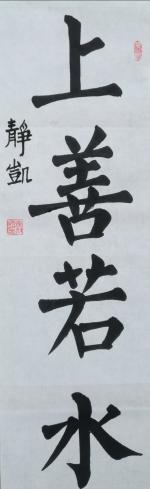 上善若水
靜凱